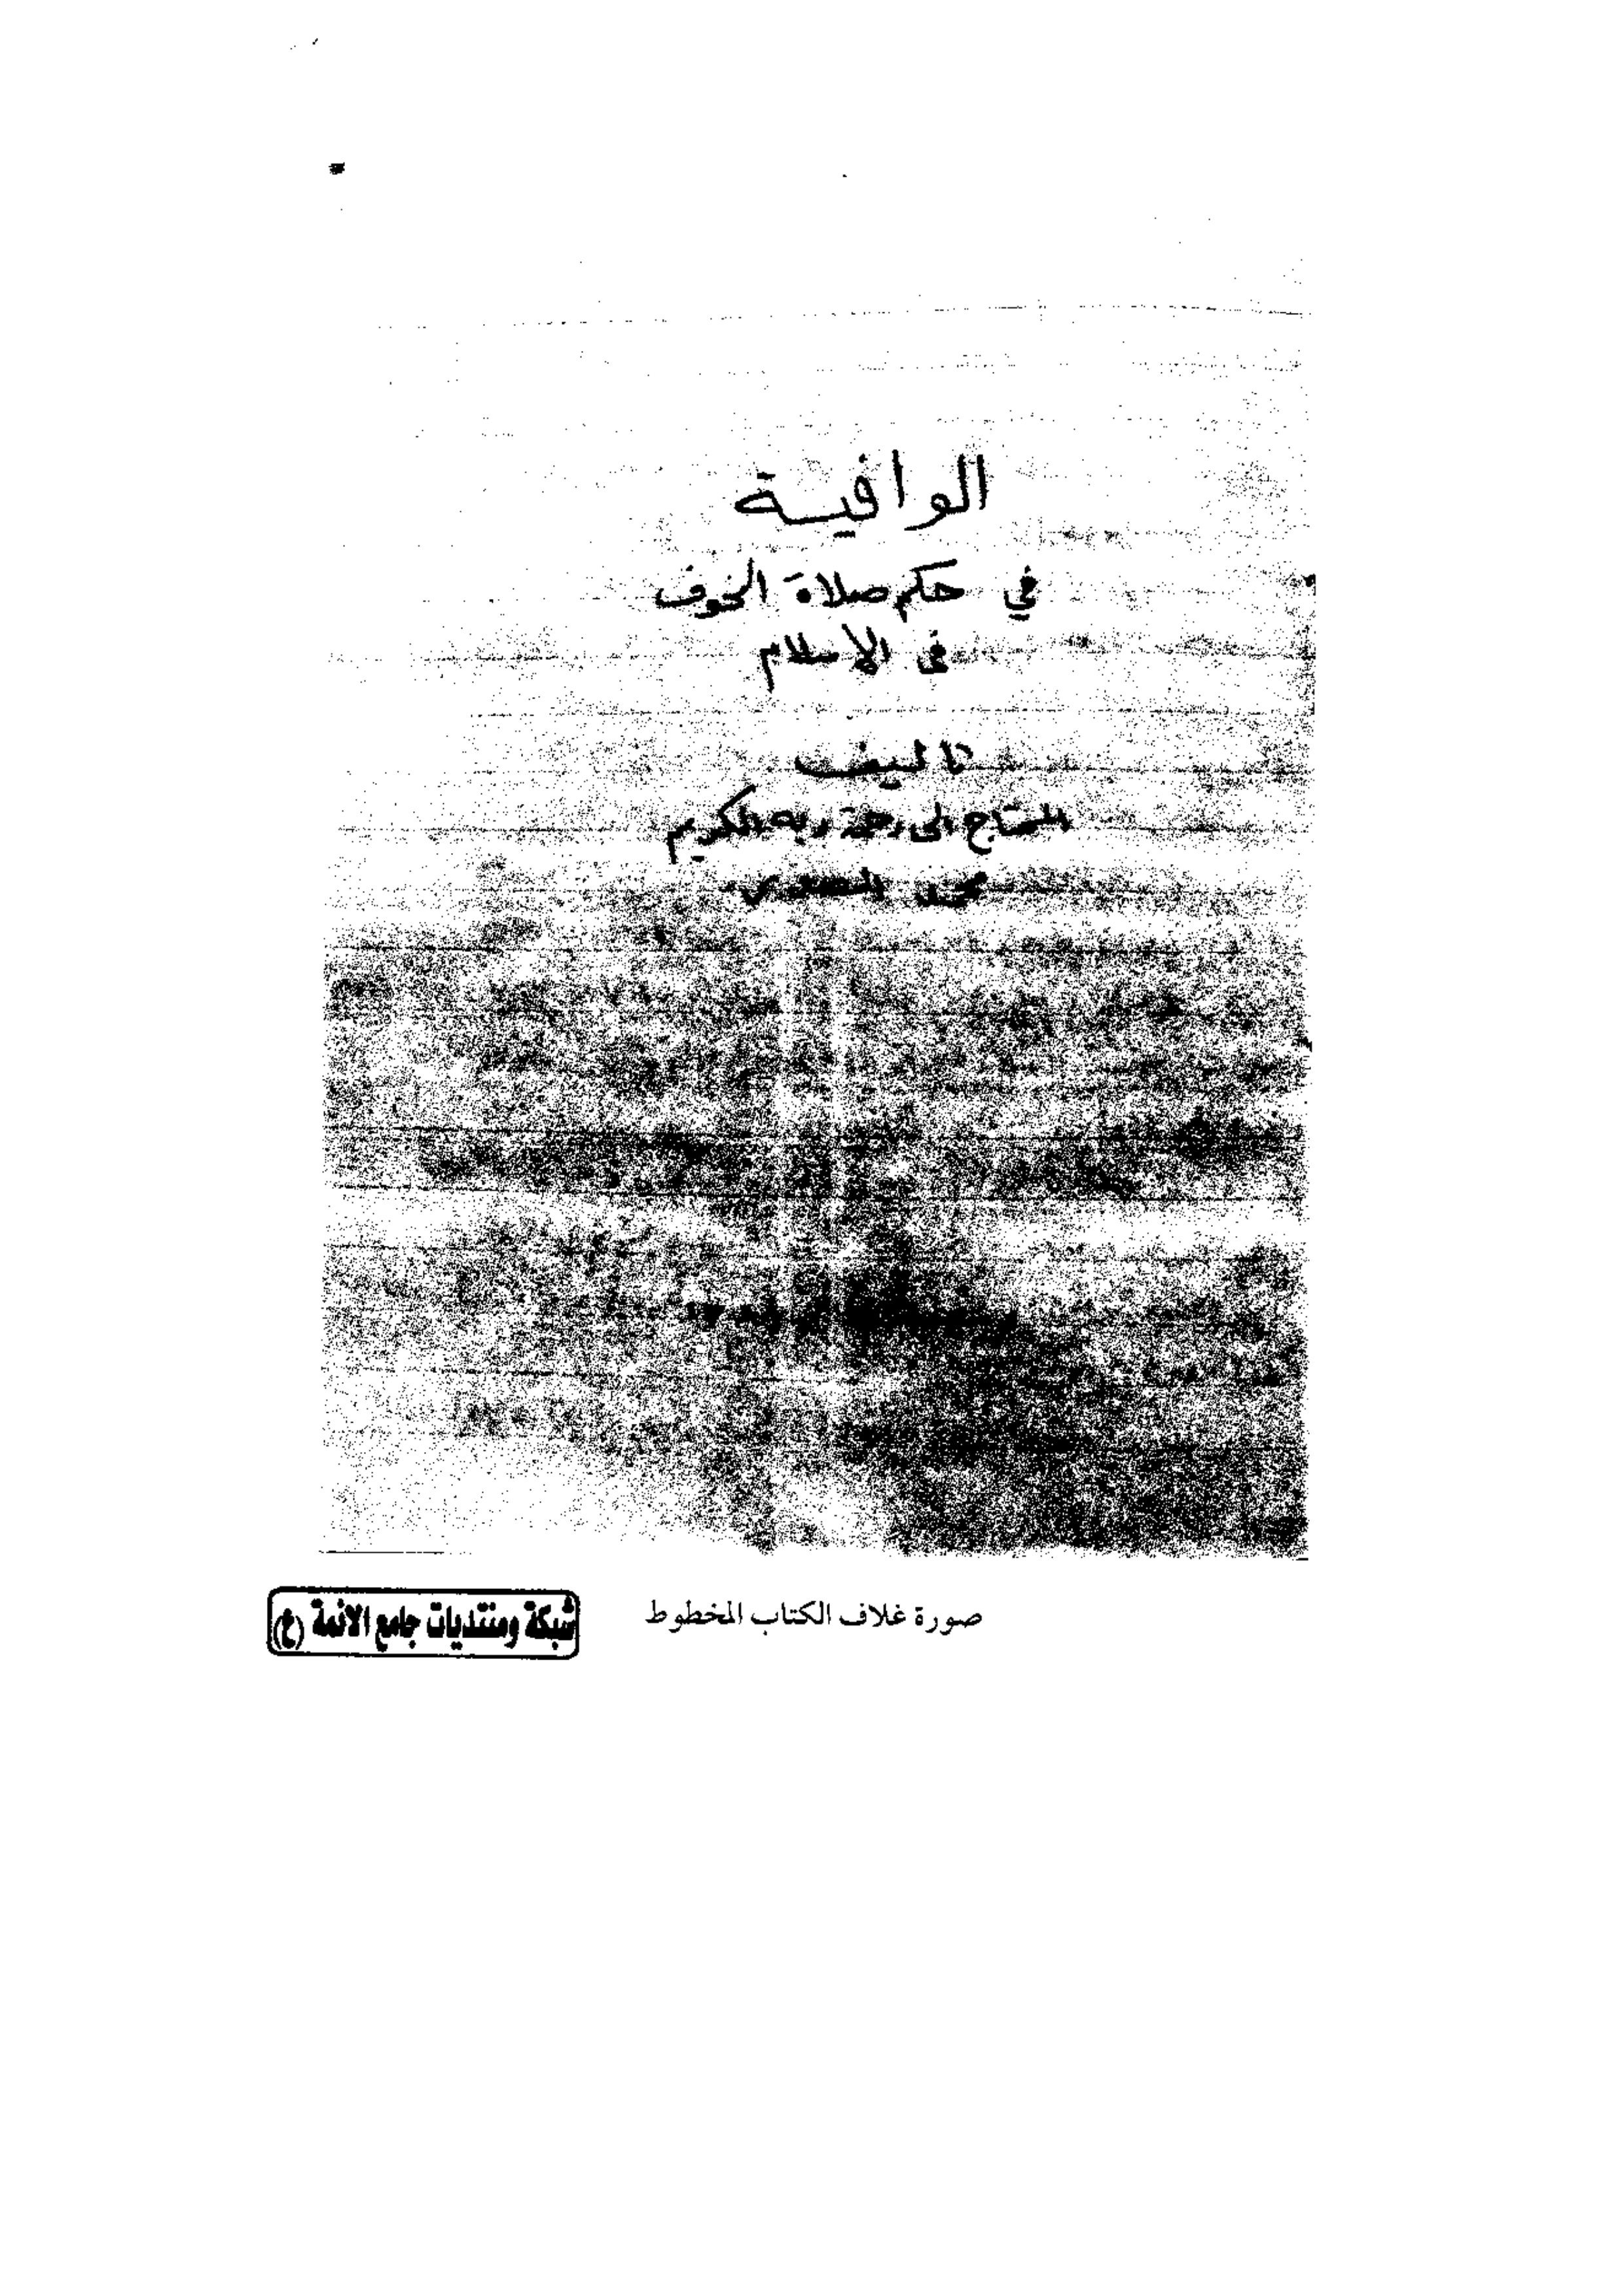 الوافية
في حكم صلاة الخوف
في الإسلام
تأليف
المحتاج إلى رحمة ربه الكريم
محمد
صورة غلاف الكتاب المخطوط
شبكة ومنتديات جامع الائمة (ع)